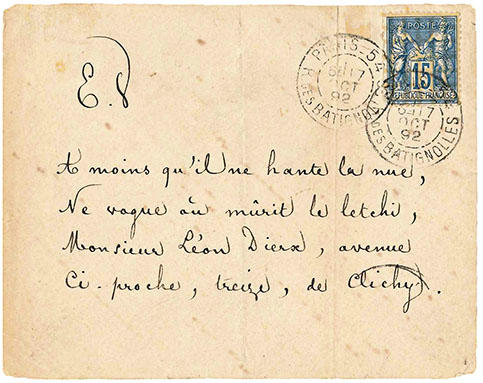 E. V
PARIS-54
OCT
92
R. DES BATIGNOLLES
POSTE
15
REPUBLIQUE FRANCAISE
17
OCT
92
DES BATIGNOLLES
A moins qu'il ne hante la nue,
Ne vogue où mûrit le letchi,
Monsieur Léon Dierx, avenue
Ci-proche, treize, de Clichy.